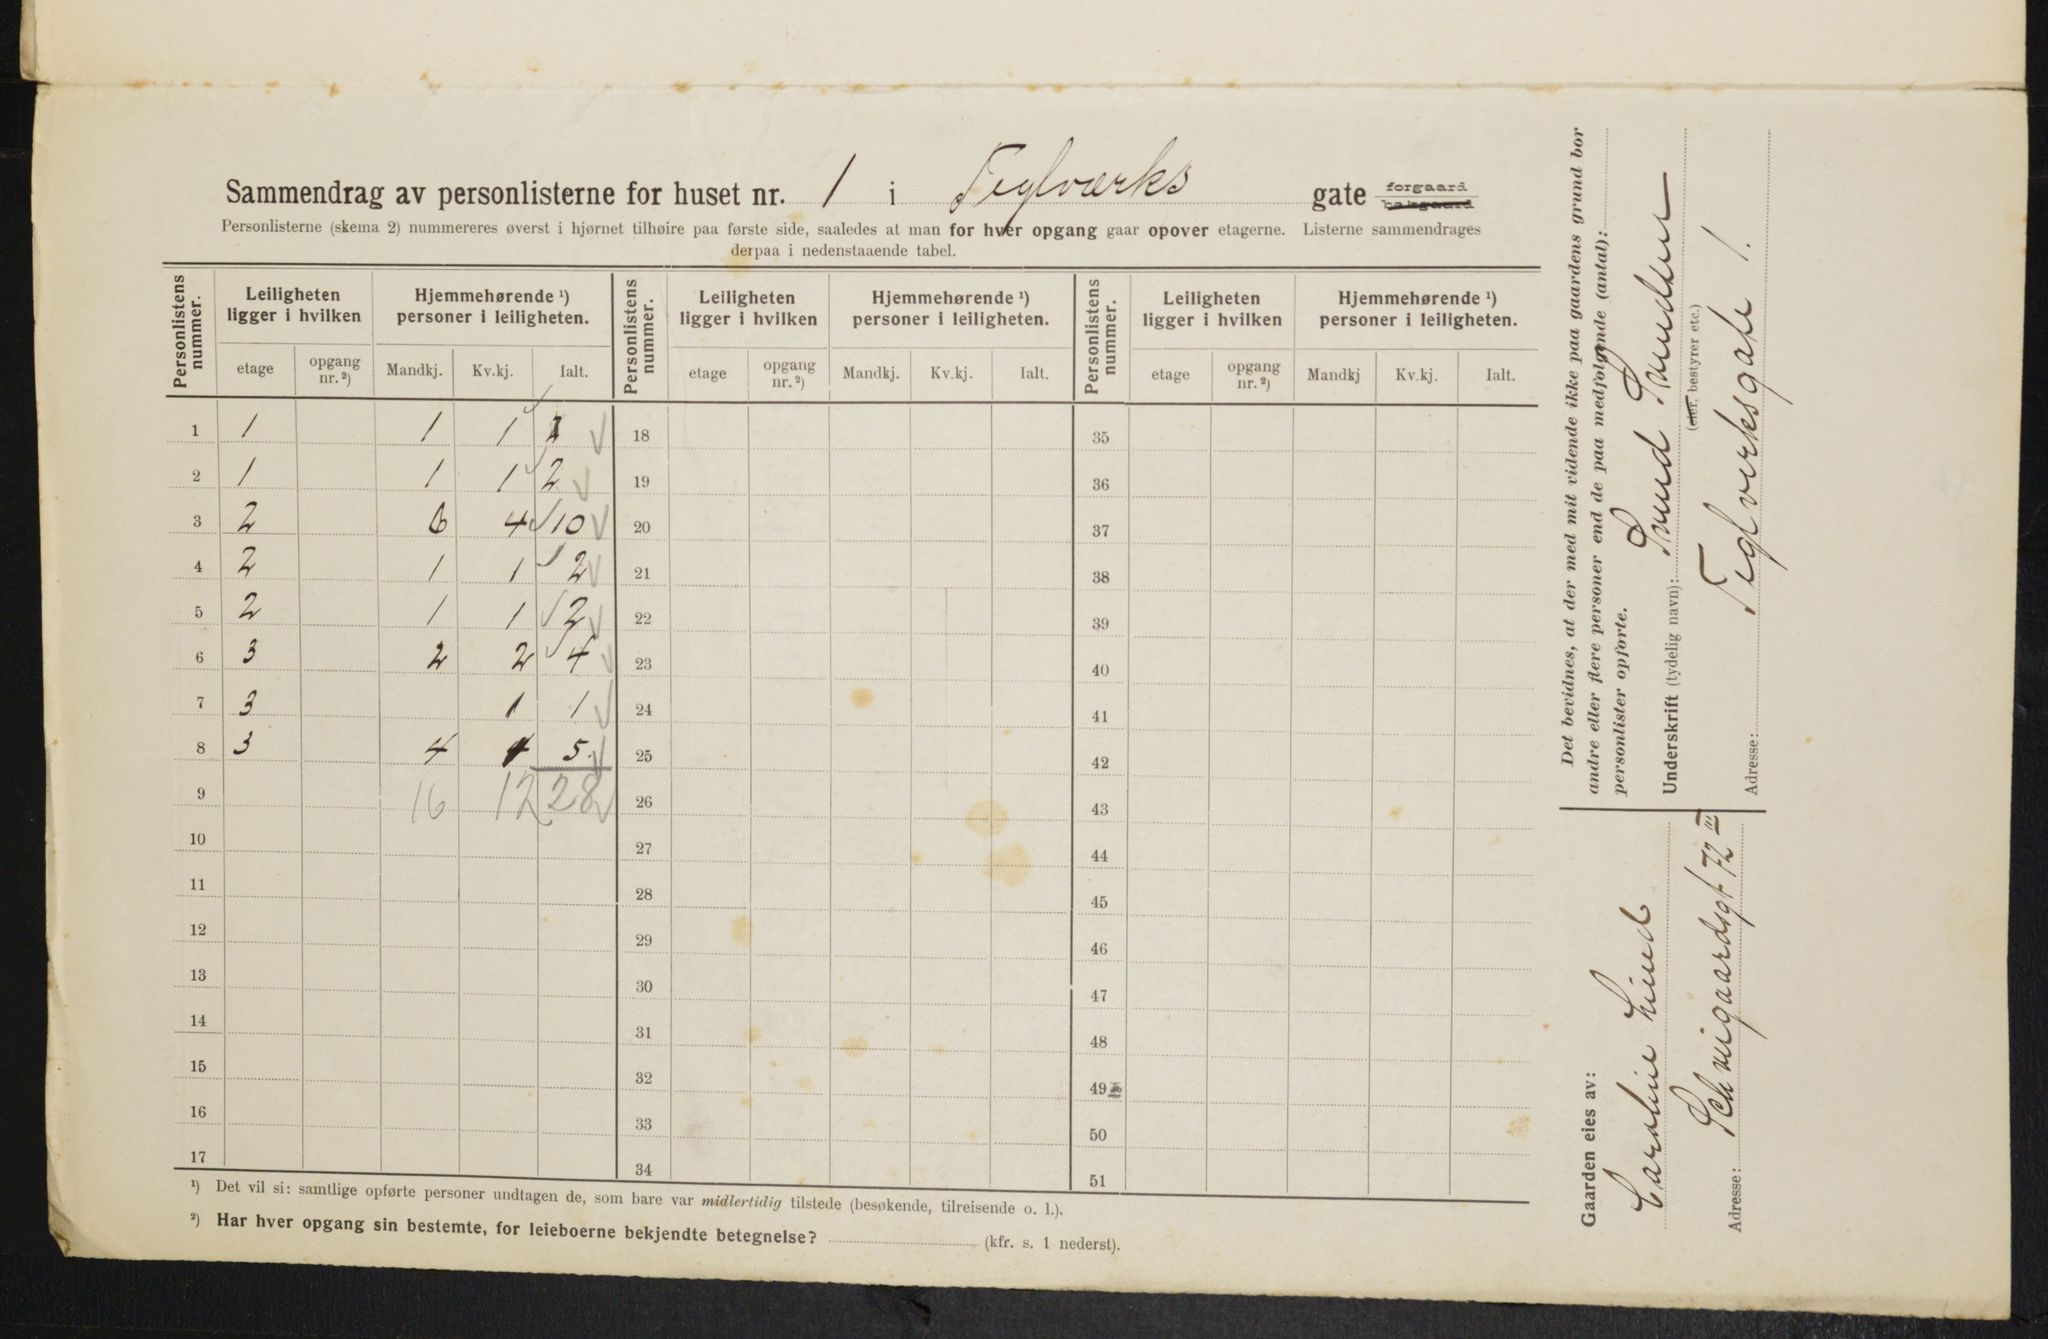 Sammendrag av personlisterne for huset nr. 1 i Teglværks gate forgaard bakgaard
Personlisterne (skema 2) nummereres øverst i hjørnet tilhøire paa første side, saaledes at man for hver opgang gaar opover etagerne. Listerne sammendrages
derpaa i nedenstaaende tabel.
Personlistens nummer. Leiligheten ligger i hvilken Hjemmehørende ¹) personer i leiligheten. Personlistens nummer. Leiligheten ligger i hvilken Hjemmehørende ¹) personer i leiligheten. Personlistens nummer. Leiligheten ligger i hvilken Hjemmehørende ¹) personer i leiligheten.
etage opgang nr. ²) Mandkj. Kv.kj. Ialt. etage opgang nr. ²) Mandkj. Kv.kj. Ialt. etage opgang nr. ²) Mandkj Kv.kj. Ialt.
1 1 1 1 18 35
2 1 1 1 2 19 36
3 2 6 4 10 20 37
4 2 1 1 2 21 38
5 2 1 1 2 22 39
6 3 2 2 4 23 40
7 3 1 1 24 41
8 3 4 1 5 25 42
9 16 12 28 26 43
10 27 44
11 28 45
12 29 46
13 30 47
14 31 48
15 32 49
16 33 50
17 34 51
¹) Det vil si: samtlige opførte personer undtagen de, som bare var midlertidig tilstede (besøkende, tilreisende o. l.).
²) Har hver opgang sin bestemte, for leieboerne bekjendte betegnelse? (kfr. s. 1 nederst).
Det bevidnes, at der med mit vidende ikke paa gaardens grund bor
andre eller flere personer end de paa medfølgende (antal):
personlister opførte.
Underskrift (tydelig navn):
(eier, bestyrer etc.)
Adresse: Teglverksgate 1.
Gaarden eies av:
Caroline Lind
Adresse: Schweigaardsgt 72 III